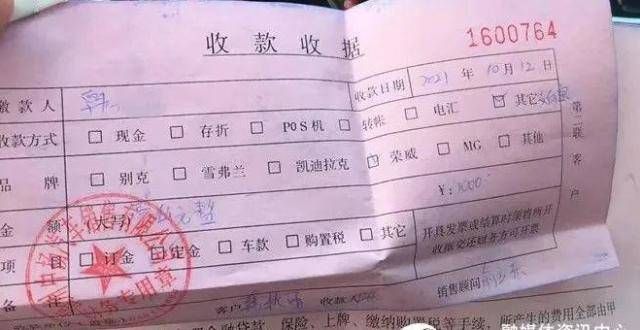 收款收据
1600764
收款日期 2021 年 10 月 12 日
缴款人
收款方式 □ 现金 □ 存折 □ POS机 □ 转帐 □ 电汇 ☑ 其它
第二联 客户
品牌 □ 别克 □ 雪弗兰 □ 凯迪拉克 □ 荣威 □ MG □ 其他
金额 (大写) 元整 ¥:1000
项目 □ 订金 □ 定金 □ 车款 □ 购置税 □ 其它
开具发票或结算时须将所开
收据交还财务方可开票
备注
客户
销售顾问
专用章
金融贷款、保险、上牌、缴纳购置税等手续,所产生的费用全部由甲
融媒体资讯中心